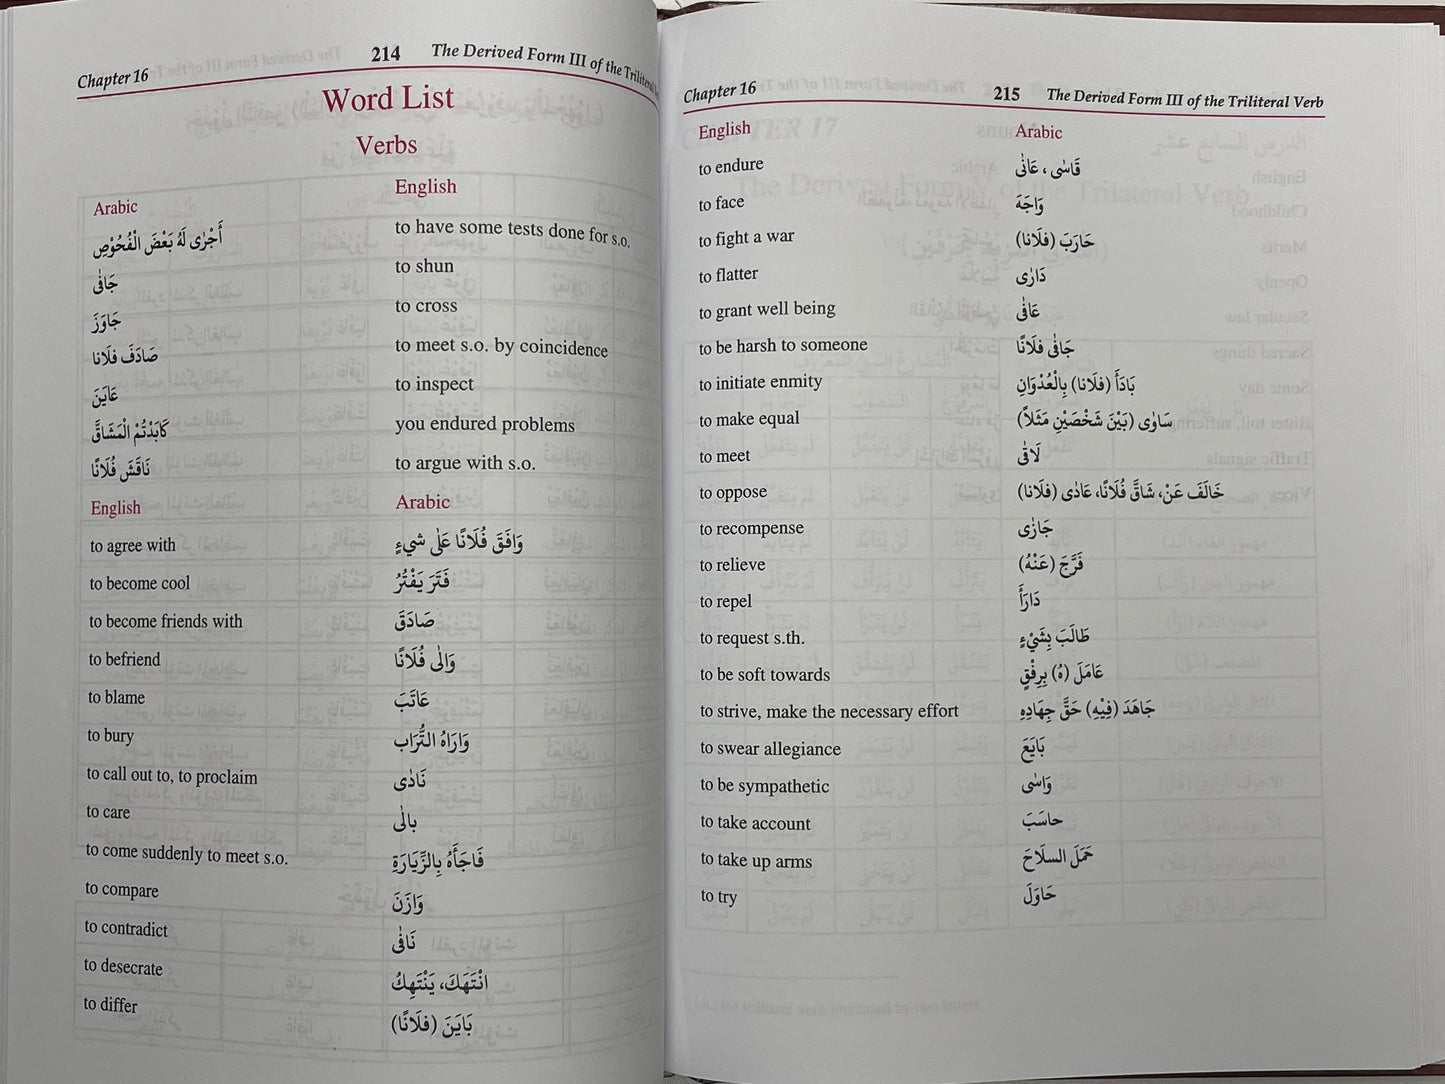 Chapter 16 214 The Derived Form III of the Triliteral
Word List
Verbs
Arabic English
أَجْرٰى لَهُ بَعْضَ الْفُحُوْصِ to have some tests done for s.o.
جَافٰى to shun
جَاوَزَ to cross
صَادَفَ فلَانا to meet s.o. by coincidence
عَايَنَ to inspect
كَابَدْتُمْ الْمَشَاقَّ you endured problems
نَاقَشَ فُلَانًا to argue with s.o.
English Arabic
to agree with وَافَقَ فُلَانًا عَلٰى شيءٍ
to become cool فَتَرَ يَفْتُرُ
to become friends with صَادَقَ
to befriend وَالٰى فُلَانًا
to blame عَاتَبَ
to bury وَارَاهُ التُّرَاب
to call out to, to proclaim نَادٰى
to care بالٰى
to come suddenly to meet s.o. فَاجَأَهُ بِالزِّيَارَةِ
to compare وَازَنَ
to contradict نَافٰى
to desecrate انْتَهَكَ، يَنْتَهِكُ
to differ بَايَنَ (فلَانًا)
Chapter 16 215 The Derived Form III of the Triliteral Verb
English Arabic
to endure قَاسٰى ، عَانٰى
to face وَاجَهَ
to fight a war حَارَبَ (فلَانا)
to flatter دَارٰى
to grant well being عَافٰى
to be harsh to someone جَافٰى فلَانًا
to initiate enmity بَادَأَ (فلَانا) بِالْعُدْوَانِ
to make equal سَاوٰى (بَيْنَ شَخْصَيْنِ مَثَلاً)
to meet لَاقٰى
to oppose خَالَفَ عَنْ، شَاقَّ فُلَانًا، عَادٰى (فلَانا)
to recompense جَازٰى
to relieve فَرَّجَ (عَنْهُ)
to repel دَارَأَ
to request s.th. طَالَبَ بِشَيْءٍ
to be soft towards عَامَلَ (هُ) بِرِفْقٍ
to strive, make the necessary effort جَاهَدَ (فِيْهِ) حَقَّ جِهَادِهِ
to swear allegiance بَايَعَ
to be sympathetic وَاسٰى
to take account حاسَبَ
to take up arms حَمَلَ السلَاحَ
to try حَاوَلَ